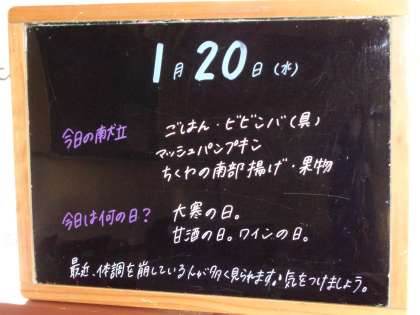 1月20日(水)
今日の献立
ごはん・ビビンバ(具)
マッシュパンプキン
ちくわの南部揚げ・果物
今日は何の日?
大寒の日。
甘酒の日。ワインの日。
最近、体調を崩している人が多く見られます。気をつけましょう。